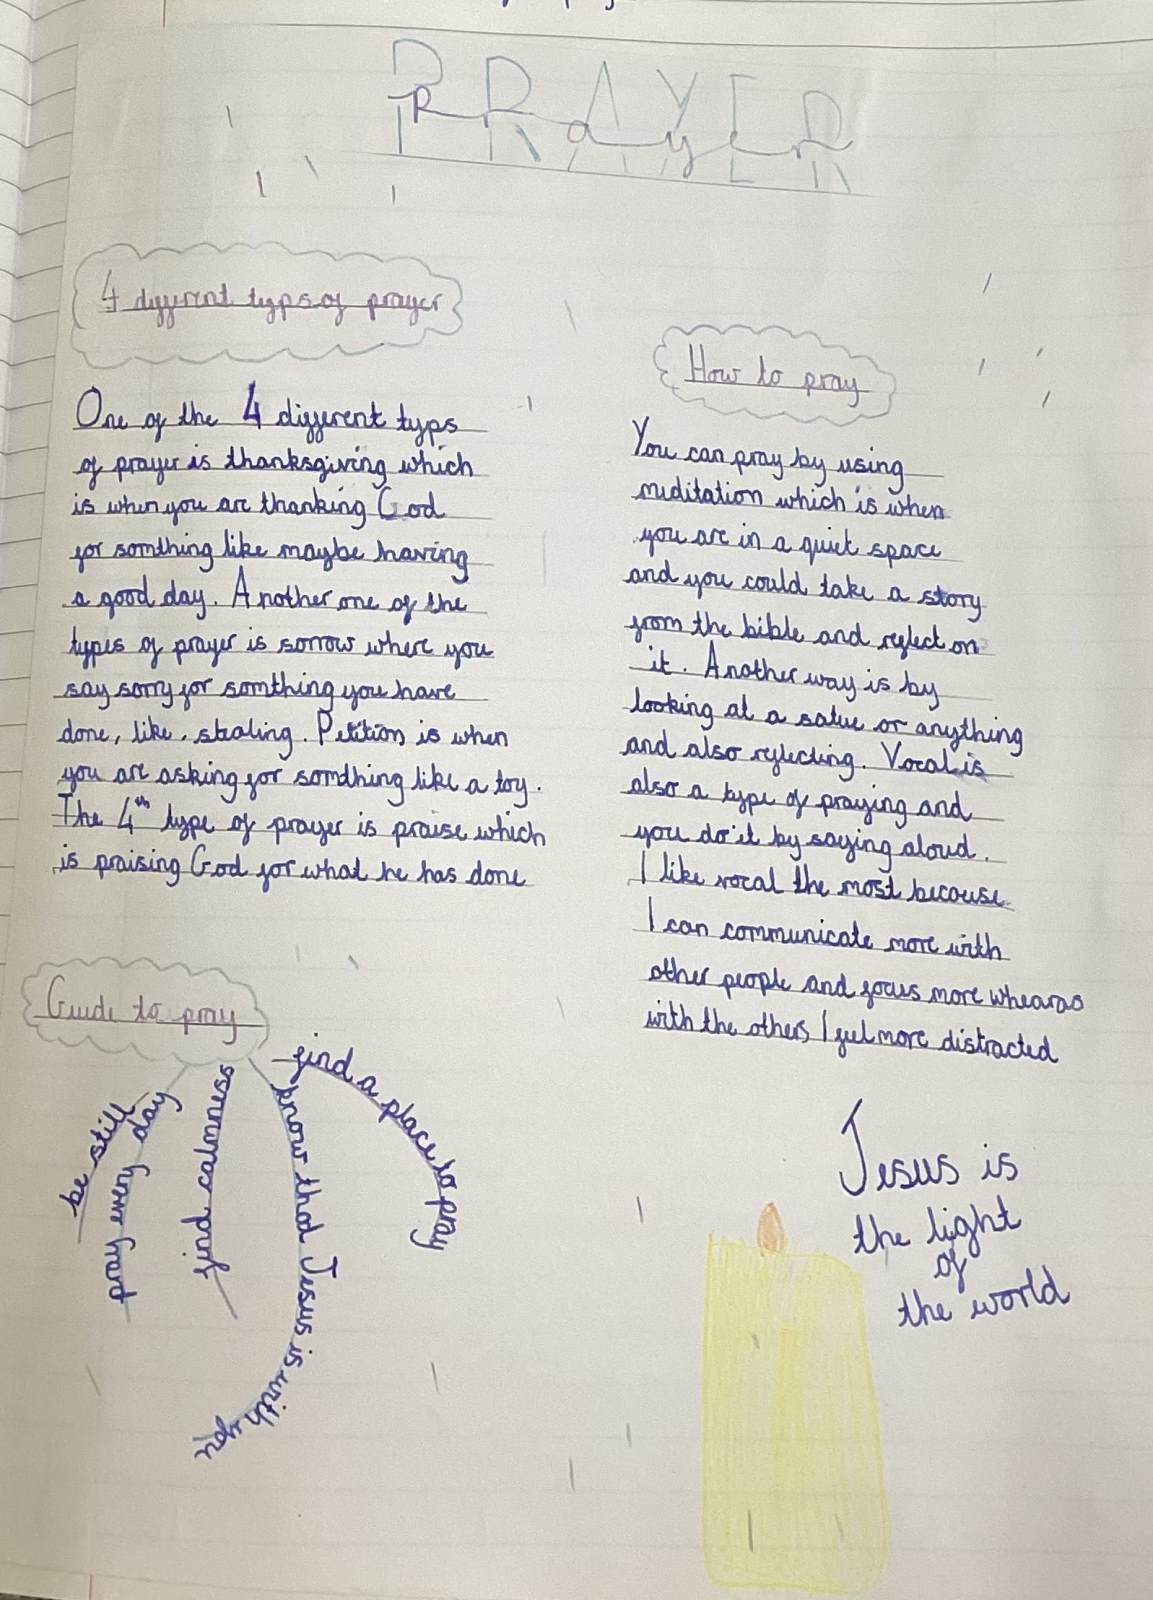 PRAYER
PRayer
4 different typs of prayer
One of the 4 different typs
of prayer is thanksgiving which
is when you are thanking God
for somthing like maybe having
a good day. Another one of the
types of prayer is sorrow where you
say sorry for somthing you have
done, like, stealing. Petition is when
you are asking for somthing like a toy.
The 4th type of prayer is praise which
is praising God for what he has done
How to pray
You can pray by using
meditation which is when
you are in a quiet space
and you could take a story
from the bible and reflect on
it. Another way is by
looking at a satue or anything
and also reflecting. Vocal is
also a type of praying and
you do it by saying aloud.
I like vocal the most because
I can communicate more with
other people and focus more wheares
with the others, I feel more distracted
Guide to pray
be still
pray every day
find calmness
know that Jesus is with you
find a place to pray
Jesus is
the light
of
the world